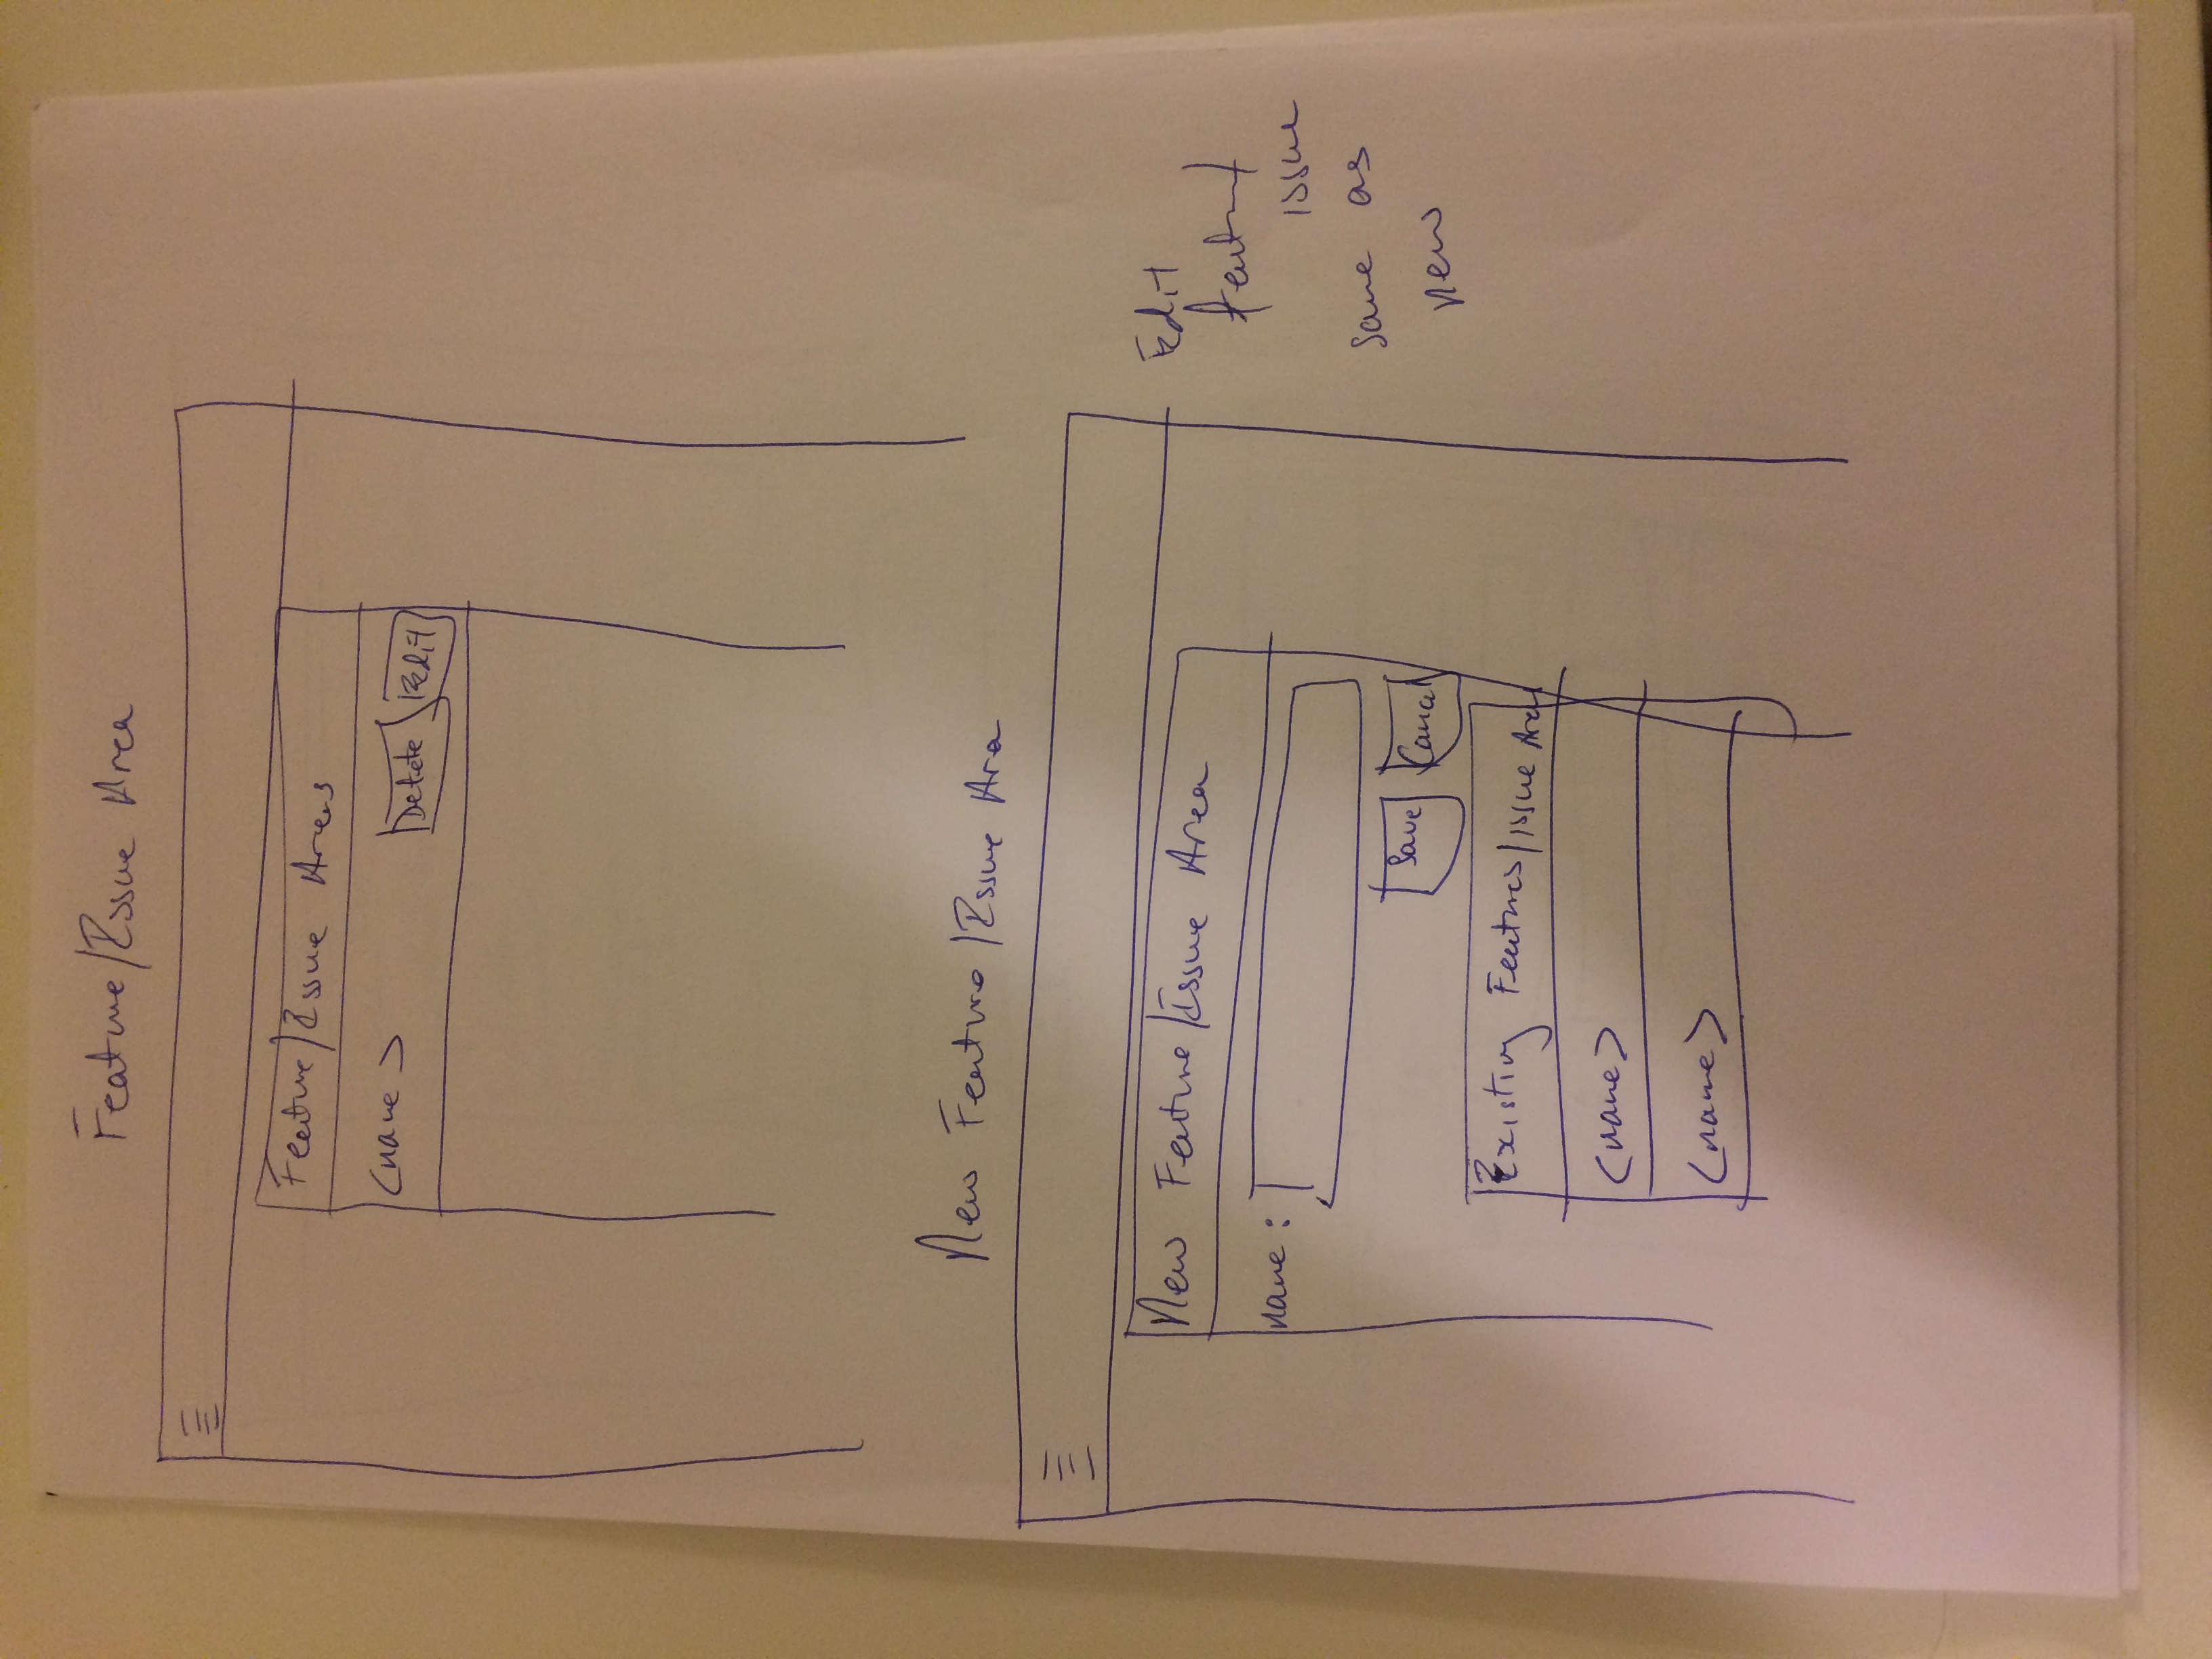 Feature/Issue Area
Feature/Issue Areas
<name>
Delete
Edit
New Feature/Issue Area
New Feature/Issue Area
name:
Save
Cancel
Existing Features/issue Areas
<name>
<name>
Edit
feature/
issue
same as
new